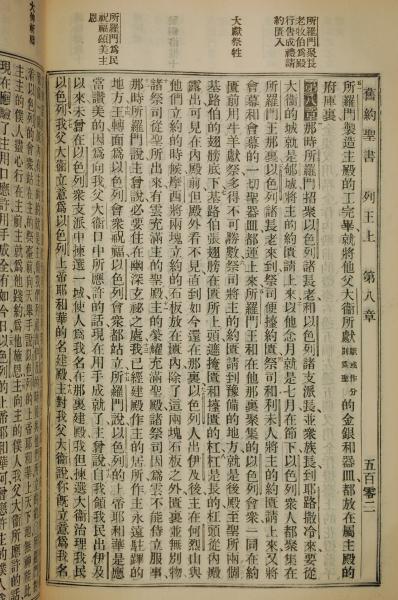 舊約聖書 列王上 第八章 五百零二
所羅門聚長老牧伯爲殿行告成禮請約匱入
大獻祭牲
所羅門爲民祝福頌美主恩
所羅門製造主殿的工完畢就將他父大衛所獻獻或作分別爲聖的金銀和器皿都放在屬主殿的
府庫裏
第八章那時所羅門招聚以色列諸長老和以色列諸支派長並衆族長到耶路撒冷來要從
大衛的城就是郇城將主的約匱請上來以他念月就是七月在節下以色列衆人都聚集在
所羅門王那裏以色列諸長老來到祭司便擡約匱祭司和利未人將主的約匱請上來又將
會幕和會幕的一切聖器皿都運上來所羅門王和在他那裏聚集的以色列會衆一同在約
匱前用牛羊獻祭多得不可勝數祭司將主的約匱請到豫備的地方就是後殿至聖所兩個
基路伯的翅膀底下基路伯張翅膀在匱所上頭遮掩匱和擡匱的杠杠是長的杠頭從內殿
露出可見在內殿前但殿外看不見直到如今還在那裏以色列人出伊及後主在何烈山與
他們立約的時候摩西將兩塊立約的石板放在匱內除了這兩塊石板之外匱裏並無別物
那時祭司從聖所出來有雲充滿主的聖殿主的榮耀充滿聖殿諸祭司因爲雲不能侍立服事
所羅門說主曾說必要住在幽深玄祕之處我已經建殿作主的居所作主永遠駐蹕的
地方王轉面爲以色列會衆祝福以色列會衆都站立所羅門說以色列的上帝耶和華是應
當讚美的因爲向我父大衛口中所應許的話現在用手成就了主曾說自我領我民出伊及
以來未曾在以色列衆支派中揀選一城使人爲我名在那裏建殿我但揀選大衛治理我民
以色列我父大衛立意爲以色列上帝耶和華的名建殿主對我父大衛說你旣立意爲我名